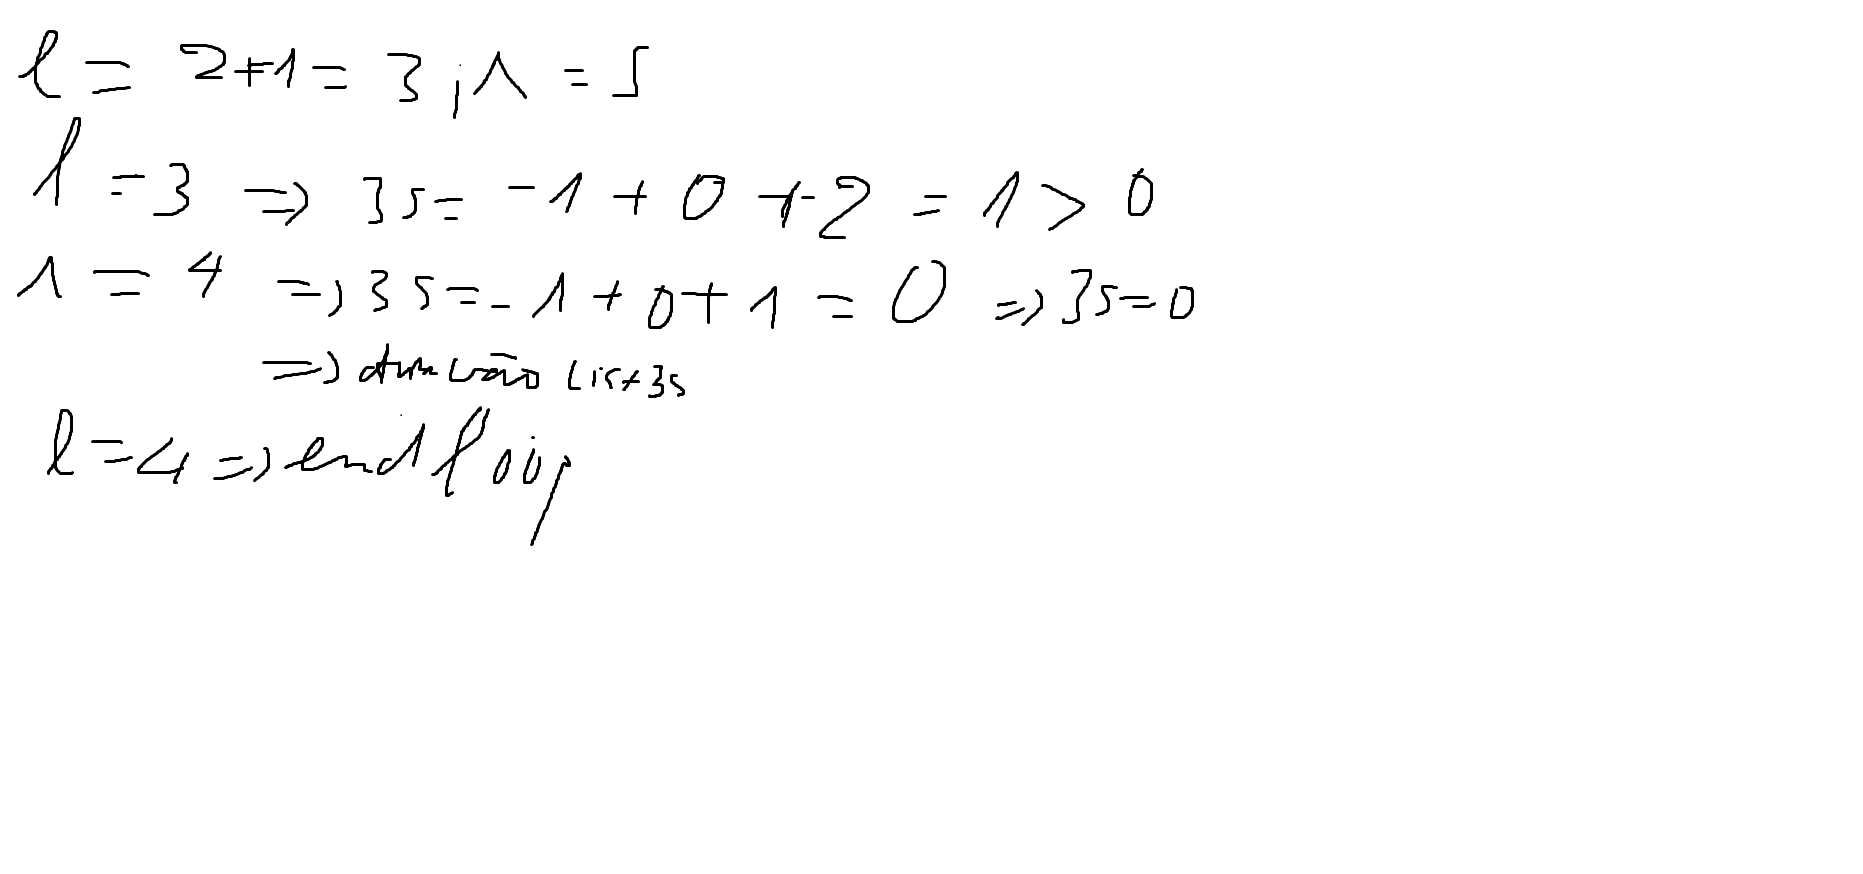 l = 2+1 = 3 ; r = 5
l = 3 => 3s = -1 + 0 + 2 = 1 > 0
r = 4 => 3s = -1 + 0 + 1 = 0 => 3s = 0
=> đưa vào list 3s
l = 4 => end loop